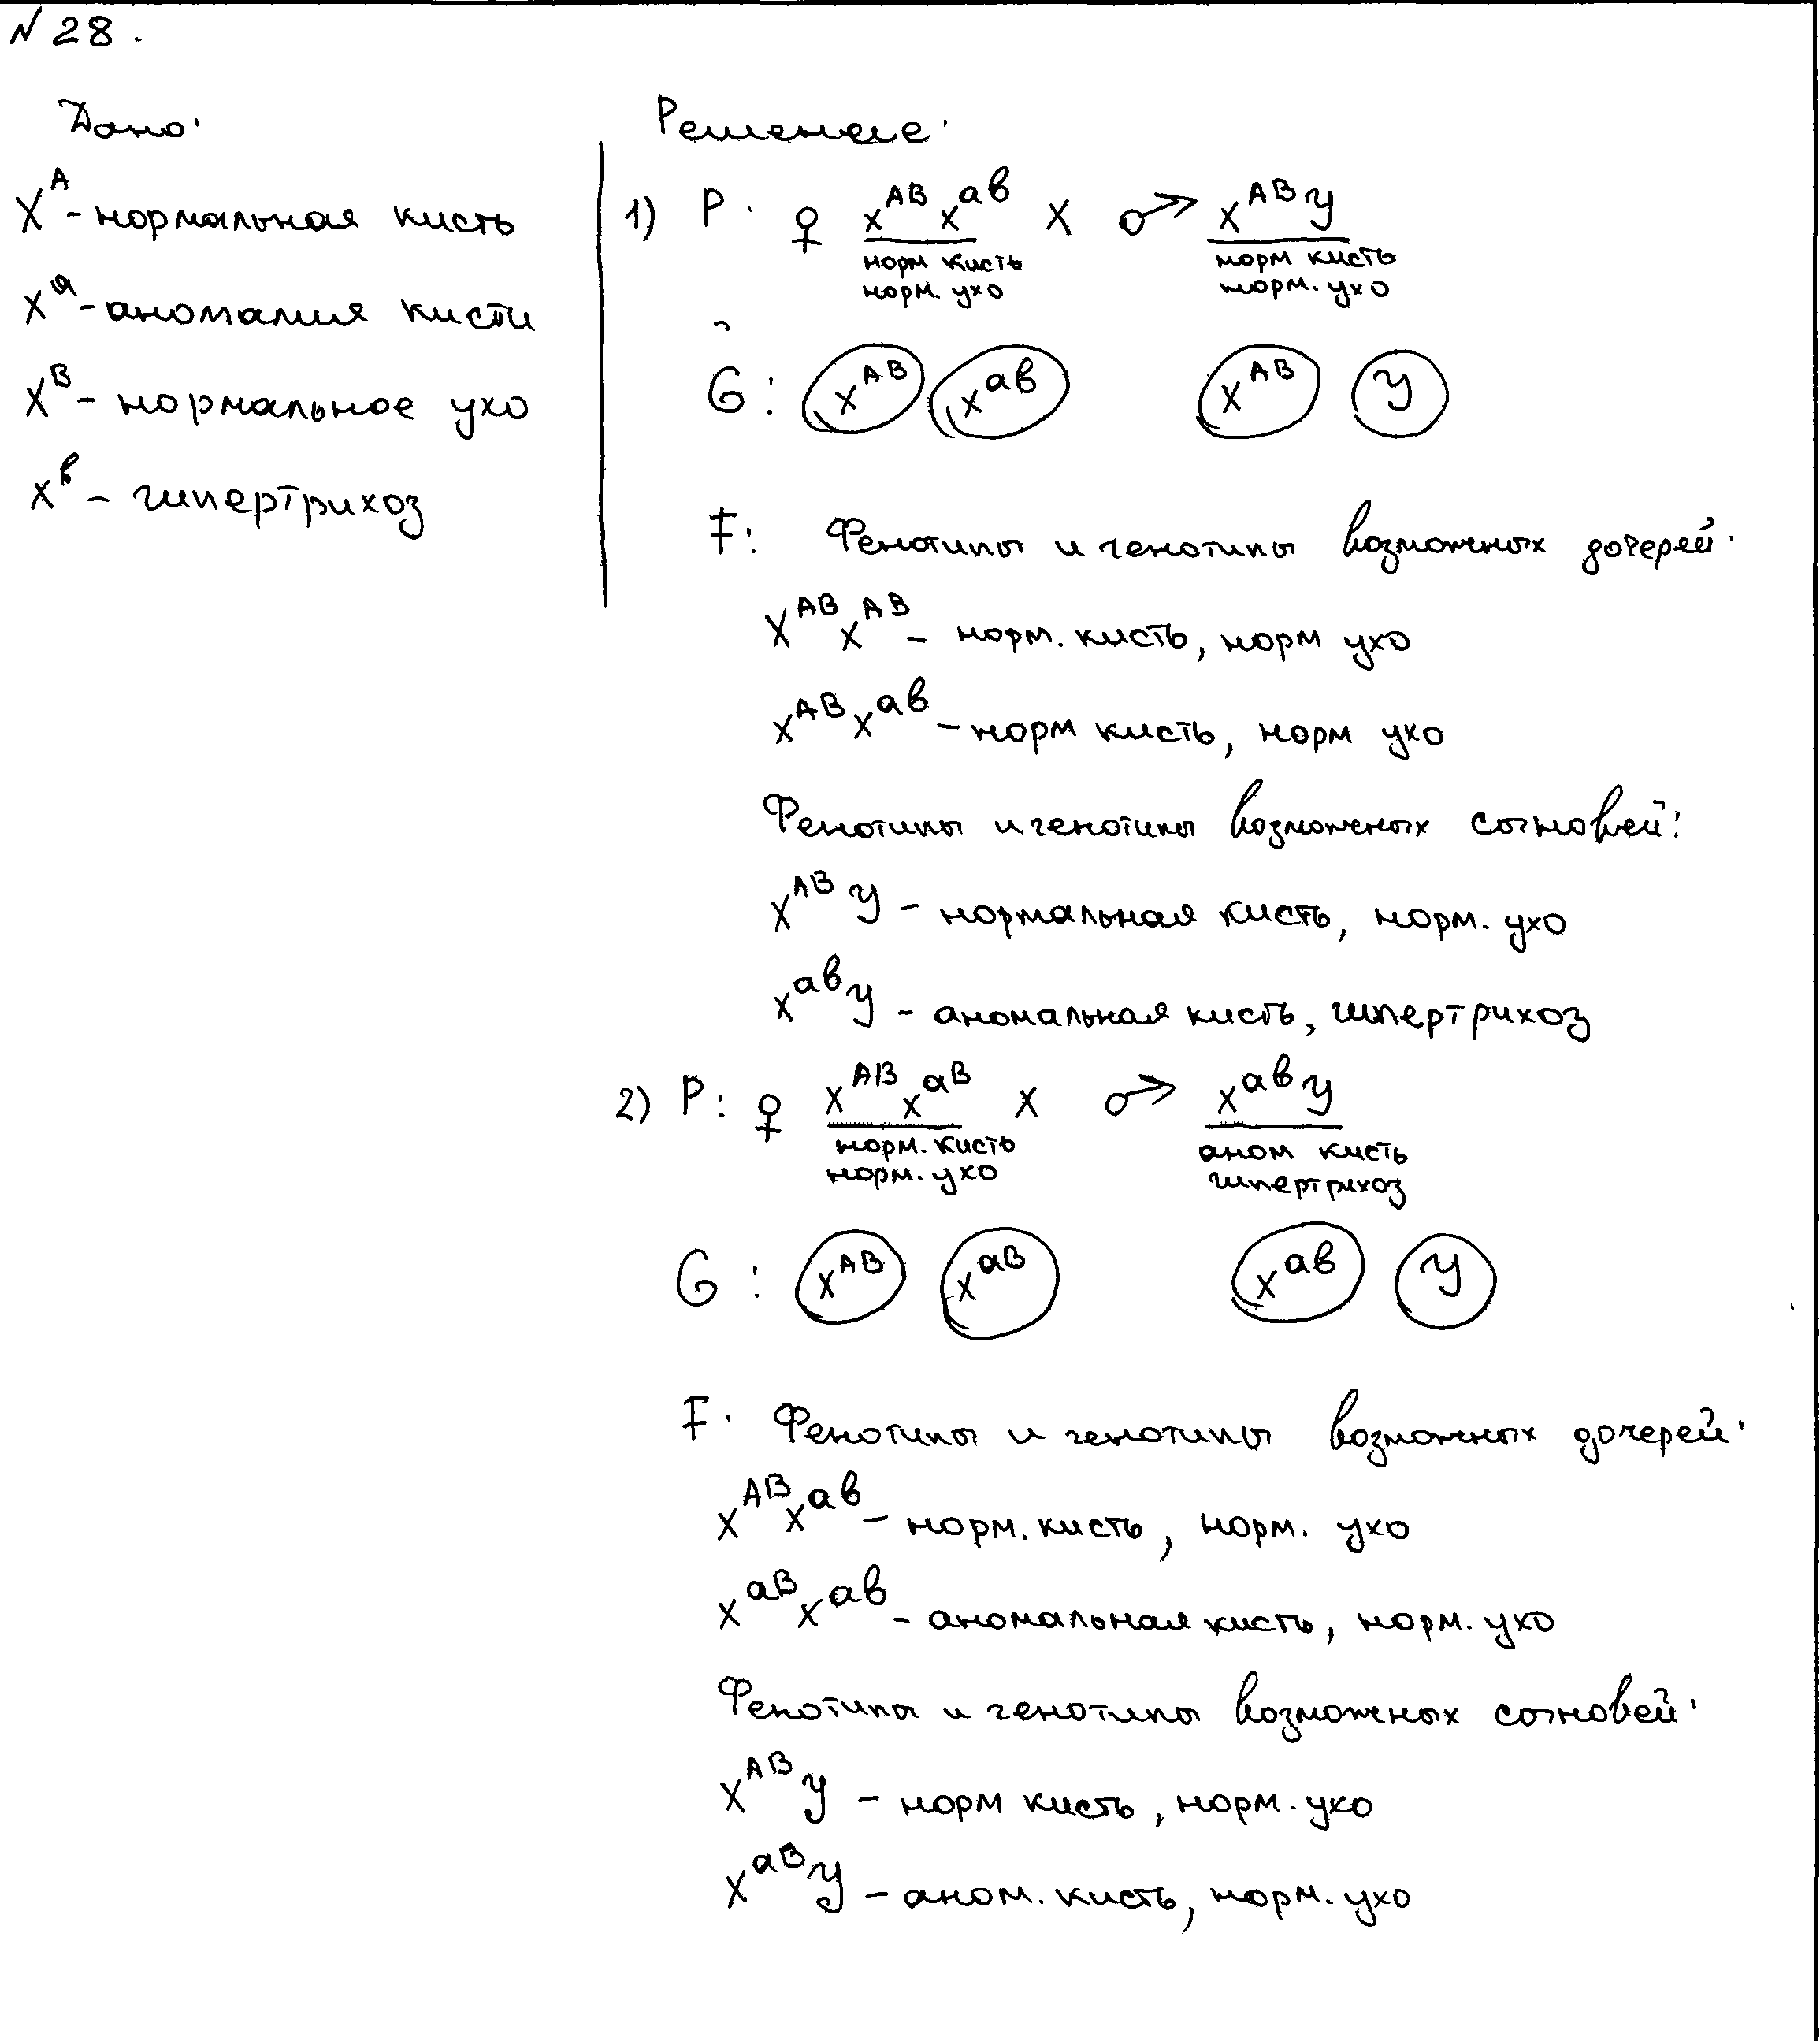 № 28.
Дано:
X^A - нормальная кисть
X^a - аномалия кисти
X^B - нормальное ухо
X^в - гипертрихоз
Решение:
1) P: ♀ X^AB X^aв X ♂ X^AB У
норм кисть норм кисть
норм. ухо норм. ухо
G: X^AB X^aв X^AB У
F: Фенотипы и генотипы возможных дочерей:
X^AB X^AB - норм. кисть, норм ухо
X^AB X^aв - норм кисть, норм ухо
Фенотипы и генотипы возможных сыновей:
X^AB У - нормальная кисть, норм. ухо
X^aв У - аномальная кисть, гипертрихоз
2) P: ♀ X^AB X^aB X ♂ X^aв У
норм. кисть аном кисть
норм. ухо гипертрихоз
G: X^AB X^aB X^aв У
F: Фенотипы и генотипы возможных дочерей:
X^AB X^aв - норм. кисть, норм. ухо
X^aB X^aв - аномальная кисть, норм. ухо
Фенотипы и генотипы возможных сыновей:
X^AB У - норм кисть, норм. ухо
X^aB У - аном. кисть, норм. ухо